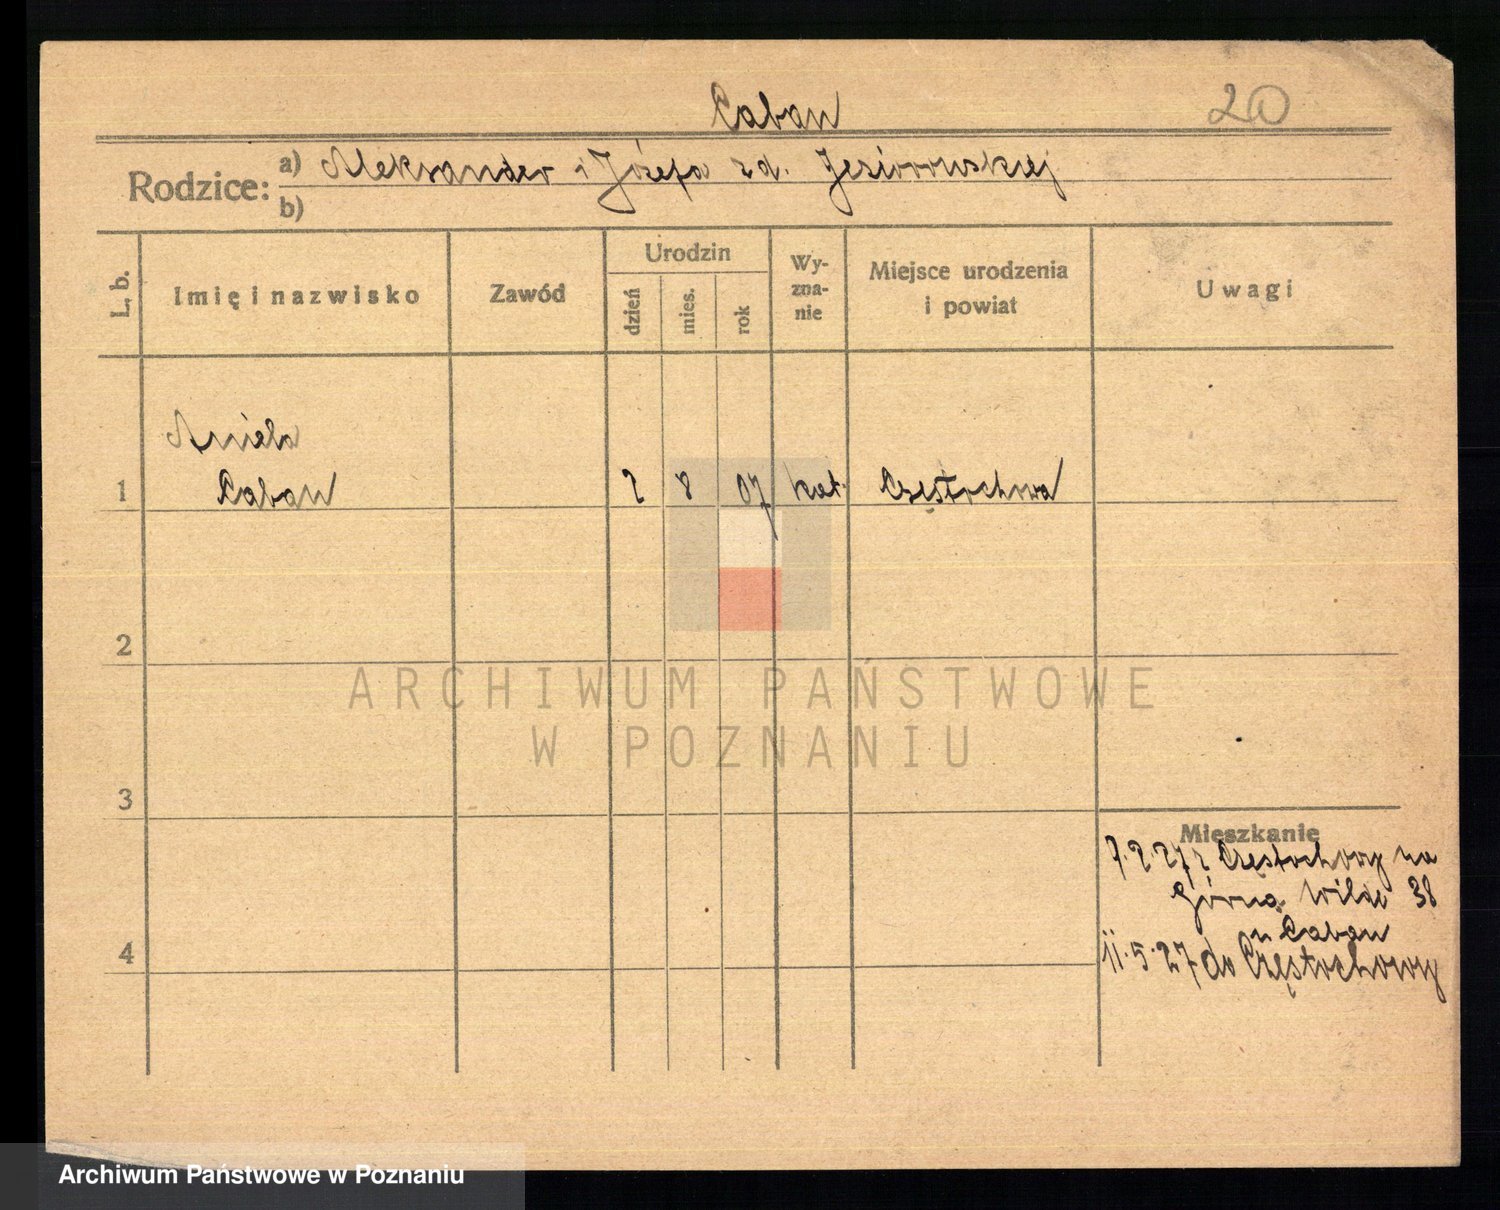 Caban
20
Rodzice: a) Aleksander i Józefa zd. Jeziorowskiej
b)
L. b. Imię i nazwisko Zawód Urodzin dzień mies. rok Wy-zna-nie Miejsce urodzenia i powiat Uwagi
Aniela
1 Caban 2 8 07 kat. Częstochowa
2
3
Mieszkanie
7.2.27 z Częstochowy na
Górna Wilda 38
u Caban
4
11.5.27 do Częstochowy
ARCHIWUM PAŃSTWOWE
W POZNANIU
Archiwum Państwowe w Poznaniu